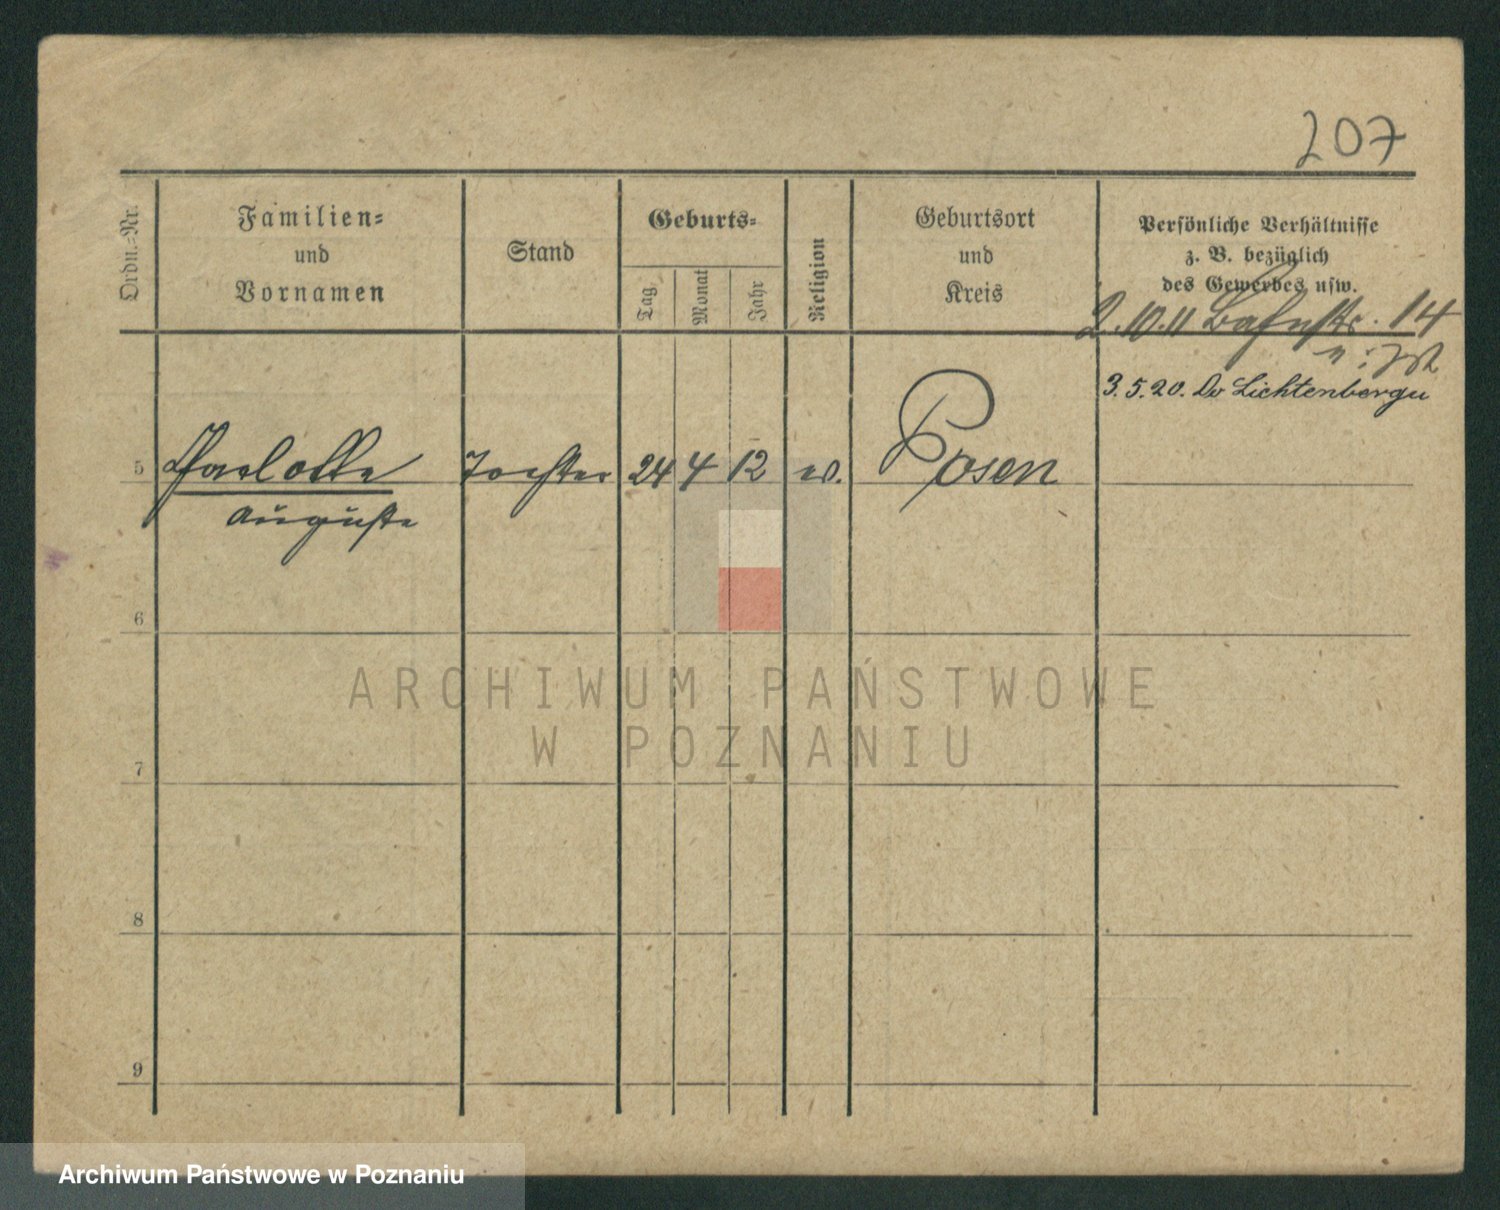 207
Ordn.=Nr.
Familien=
und
Vornamen
Stand
Geburts=
Tag
Monat
Jahr
Religion
Geburtsort
und
Kreis
Persönliche Verhältnisse
z. B. bezüglich
des Gewerbes usw.
2.10.11 Bahnstr. 14
3.5.20. Lichtenberg
5 Charlotte Tochter 24 4 12 ev. Posen
Auguste
6
7
8
9
ARCHIWUM PAŃSTWOWE
W POZNANIU
Archiwum Państwowe w Poznaniu